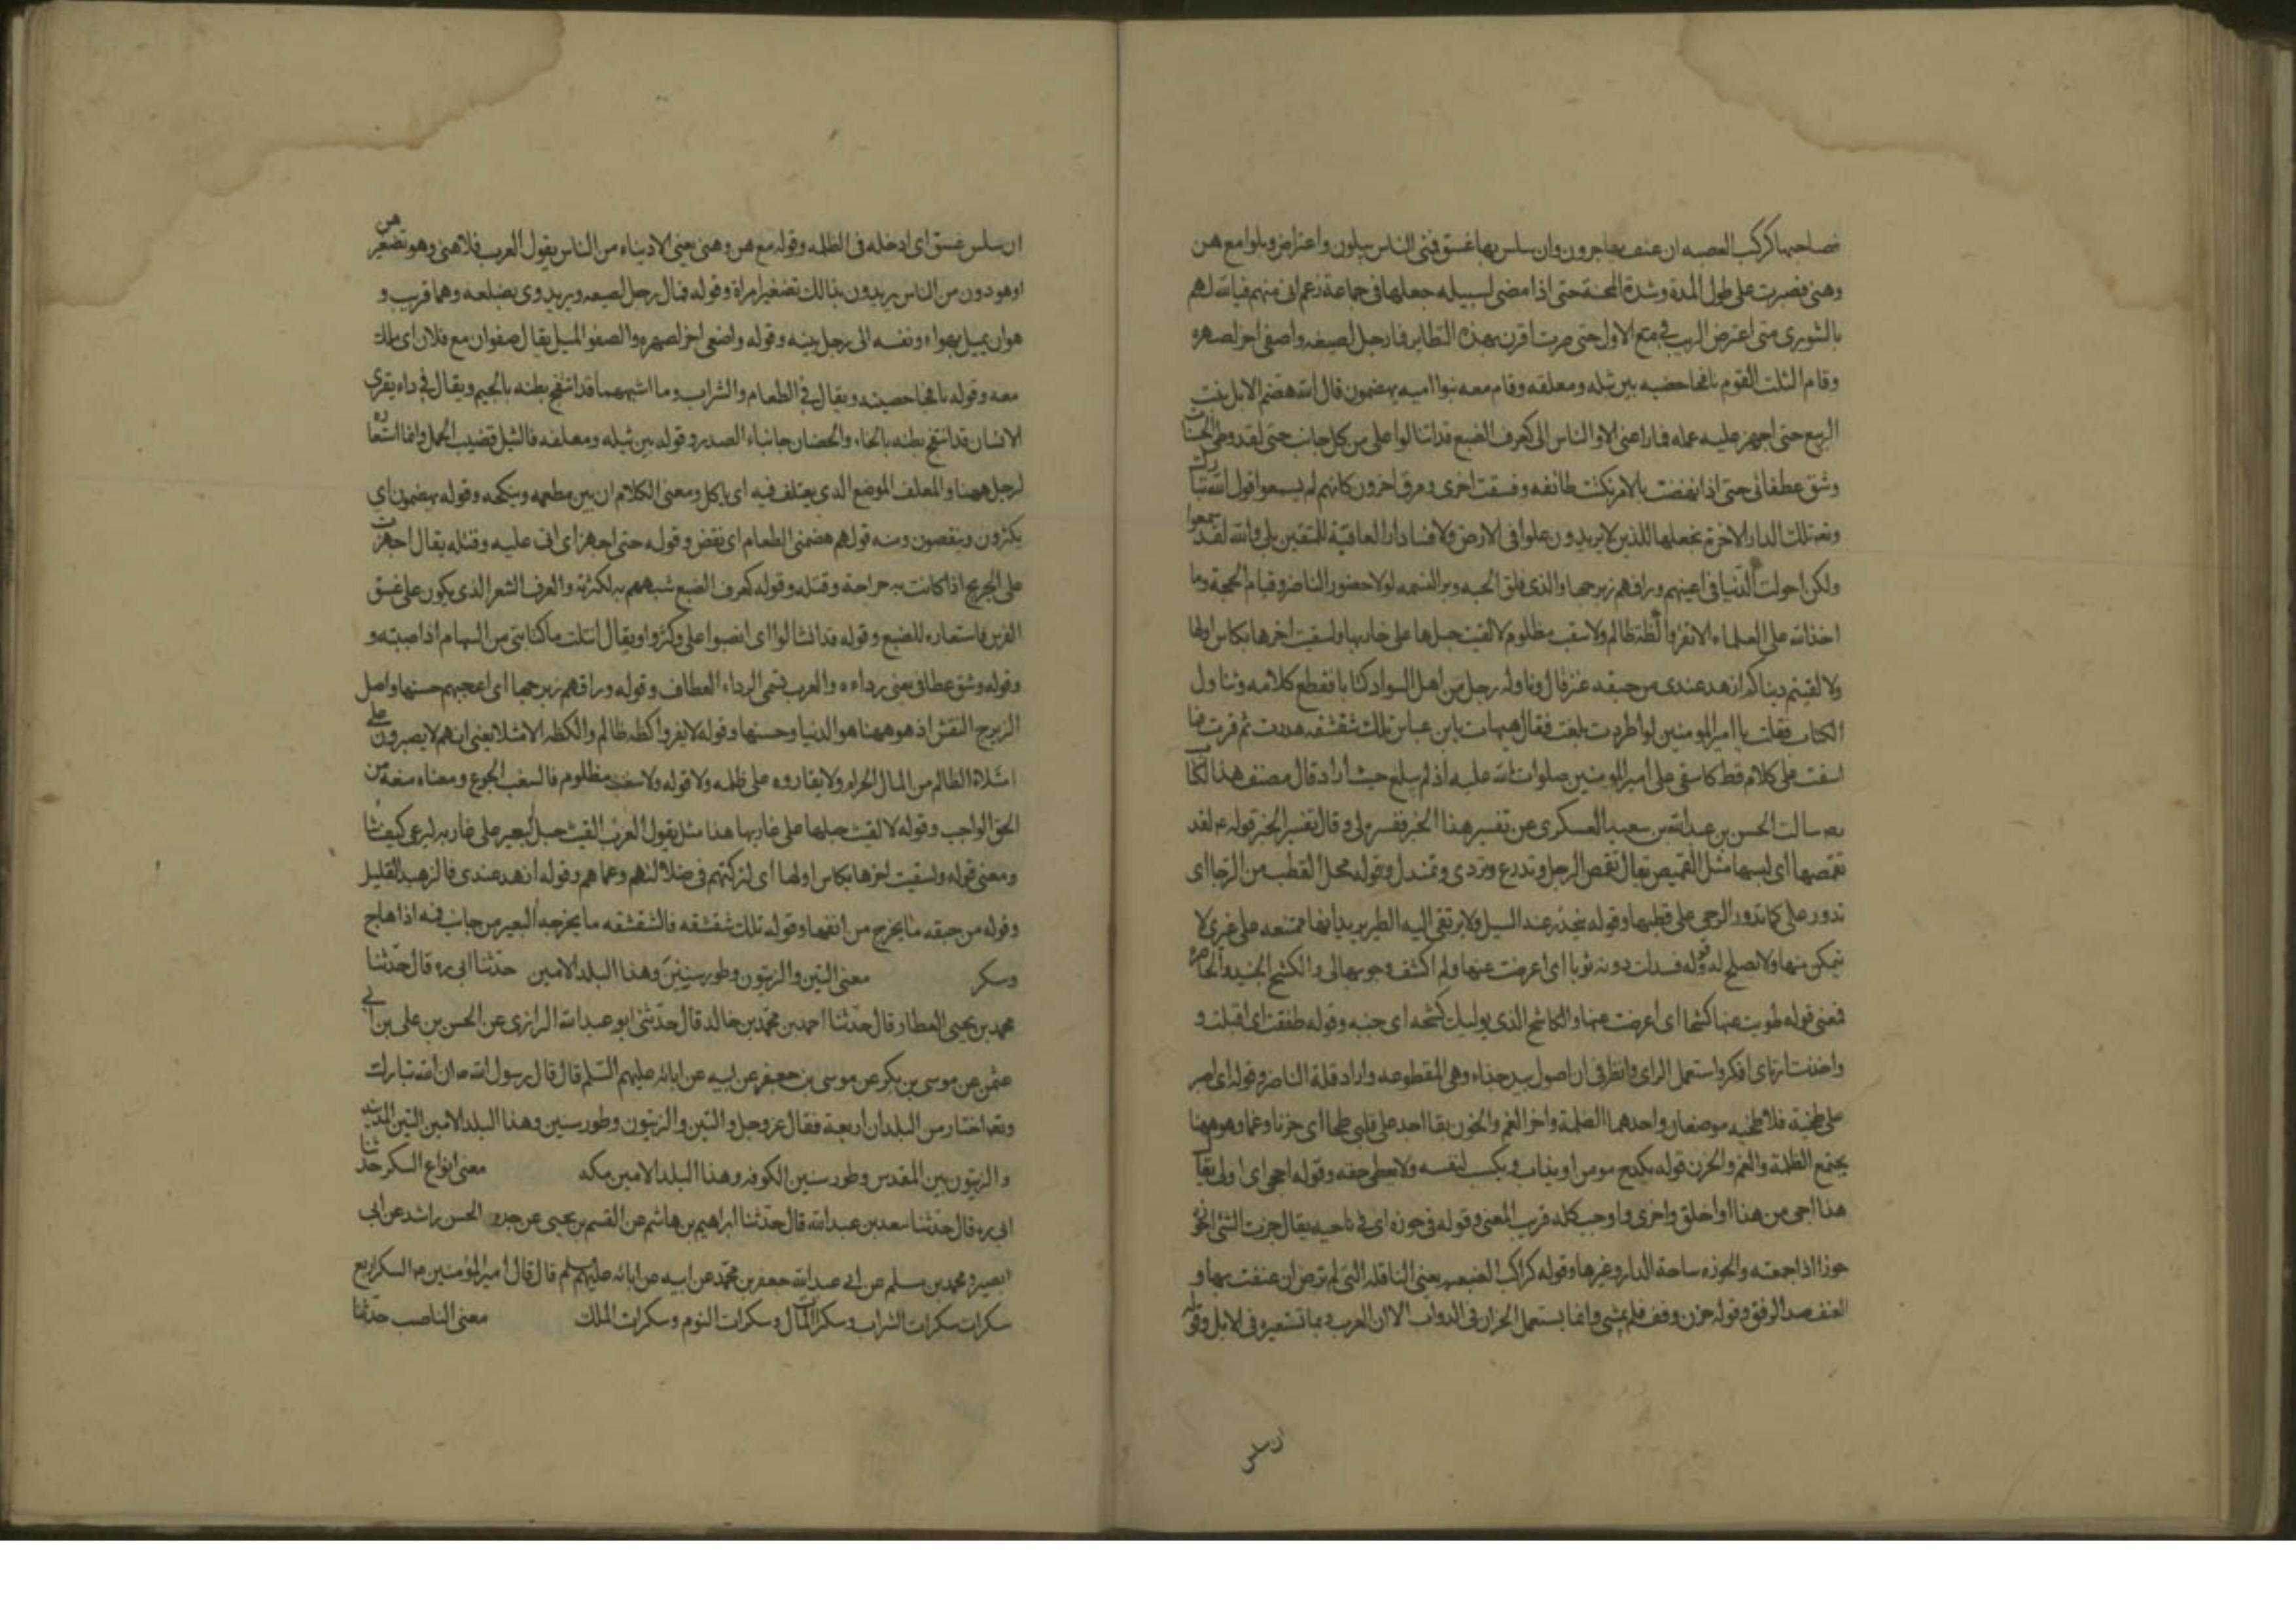 فصاحبها كركب الصعبه ان عنف بها حرون وان سلس بها غسق فنى الناس بتلون واعتراض وبلوا مع هن
وهنى فصبرت على طول المدة وشدة المحنة حتى اذا مضى لسبيله جعلها فى جماعة زعم انى منهم فيالله لهم
بالشورى متى اعترض الريب فى مع الاول حتى صرت اقرن بهذه النظاير فمار رجل لضيعه واصغى اخر لصهره
وقام الثلث القوم نافخا حضنيه بين نثيله ومعلفه وقام معه بنوا اميه يهضمون مال الله هضم الابل نبت
الربيع حتى اجهز عليه عمله فما راعنى الا والناس الى كعرف الضبع قد انثالوا على من كل جانب حتى لقد وطئ الحسنان
وشق عطفانى حتى اذا نهضت بالامر نكثت طائفه وفسقت اخرى ومرق اخرون كانهم لم يسمعوا قول الله تبارك
وتعه تلك الدار الاخرة نجعلها للذين لا يريدون علوا فى الارض ولا فسادا والعاقبة للمتقين بلى والله لقد سمعوا
ولكن احولت الدنيا فى اعينهم وراقهم زبرجها والذى فلق الحبه وبرا النسمه لولا حضور الناصر وقيام الحجة وما
اخذ الله على العلماء الا تقروا كظة ظالم ولا سغب مظلوم لالقيت حبلها على غاربها ولسقيت اخرها بكاس اولها
ولا لقيتم دنياكم ازهد عندى من حبقه عنز قال وناوله رجل من اهل السواد كتابا فقطع كلامه وتناول
الكتاب فقلت يا امير المومنين لو اطردت بلغت فقال هيهات يابن عباس تلك شقشقه هدرت ثم قرت فما
اسفت على كلام قط كاسفى على امير المومنين صلوات الله عليه اذ لم يبلغ حيث اراد قال مصنف هذا الكتاب
ره سالت الحسن بن عبدالله بن سعيد العسكرى عن تفسير هذا الخبر ففسره لى وقال تفسير الخبر قوله ع لقد
تقمصها اى لبسها مثل القميص يقال تقمص الرجل وتدرع وتردى وتمندل وقوله محل القطب من الرحا اى
تدور على كما تدور الرحى على قطبها وقوله ينحدر عنه السيل ولا يرتقى اليه الطير يريد انها ممتنعه على غيرى لا
يتمكن منها ولا يصلح له قوله فسدلت دونه ثوبا اى اعرضت عنها ولم اكشف وجوبها لى والكشح الجنب والخاصرة
فمعنى قوله طويت عنها كشحا اى اعرضت عنها والكاشح الذى يوليك كشحه اى جنبه وقوله طفقت اى اقبلت و
واخذت ارتاى افكر واستعمل الراى وانظر فى ان اصول بيد جذاء وهى المقطوعه واراد قلة الناصر وقوله او اصبر
على طخية فللطخيه موضعان واحدهما الظلمة واخر الغم والحزن يقال اجد على قلبى طخا اى حزنا وغما وهو ههنا
يجتمع الظلمة والغم والحزن قوله يكدح مومن او يذاب ويكسب لنفسه ولا يعطى حقه وقوله احجى اى اولى يقال
هذا احجى من هذا او اخلق واحرى واوجب كله قريب المعنى وقوله فى حوزه اى فى ناحيه يقال حزت الشئ احوزه
حوزا اذا جمعته والحوزه ساحة الدار وغيرها وقوله كراكب الصعبه يعنى الناقله التى لم ترض ان عنفت بها و
العنف ضد الرفق وقوله حزن وقف فلم يمشى وانما يستعمل الحزان فى الدواب الا ان العرب ربما تستعيره فى الابل وقوله
ان سلس
ان سلس غسق اى ادخله فى الظلمه وقوله مع هن وهنى يعنى الادنياء من الناس يقول العرب فلان هنى وهو تصغير هن
اوهو دون من الناس يريدون بذالك تصغير امراة وقوله فمال رجل لضيعه ويريد وى بضلعه وهما قريب و
هو ان يميل بهواه ونفسه الى رجل بينه وقوله واصغى اخر لصهره والصغو الميل يقال صغوان مع فلان اى ملك
معه وقوله نافخا حضنيه ويقال فى الطعام والشراب وما اشبههما قد انتفج بطنه بالجيم ويقال فى داء يعترى
الانسان قد انتفخ بطنه بالخاء والحضنان جانباء الصدر وقوله بين ثيله ومعلفه فالثيل قضيب الجمل وانما استعاره
لرجل ههنا والمعلف الموضع الذى يعتلف فيه اى ياكل ومعنى الكلام ان بين مطعمه وينكحه وقوله يهضمون اى
يكثرون وينقصون ومنه قولهم هضمنى الطعام اى نقض وقوله حتى اجهز اى اتى عليه وقتله يقال اجهزت
على الجريح اذا كانت به جراحة وقتله وقوله كعرف الضبع شبههم به لكثرته والعرف الشعر الذى يكون على عنق
الفرس فاستعاره للضبع وقوله قد انثالوا اى انصبوا على وكثروا ويقال انثلت ما كنانتى من السهام اذا صببته و
وقوله وشق عطافى يعنى رداءه والعرب تسمى الرداء العطاف وقوله وراقهم زبرجها اى اعجبهم حسنها واصل
الزبرج النقش اذ هو ههنا هو الدنيا وحسنها وقوله لا يقروا كظه ظالم والكظه الامتلا يعنى انهم لا يصبرون على
امتلاة الظالم من المال الحرام ولا يقاروه على ظلمه ولا قوله ولا سغب مظلوم فالسغب الجوع ومعناه منعه من
الحق الواجب وقوله لالقيت حبلها على غاربها هذا مثل يقول العرب القيت حبل البعير على غاربه ليرعى كيف شا
ومعنى قوله ولسقيت اخرها بكاس اولها اى لتركتهم فى ضلالتهم وعماهم وقوله ازهد عندى فالزهيد القليل
وقوله من حبقه ما يخرج من انفها وقوله تلك شقشقه فالشقشقه ما يخرجه البعير من جانب فيه اذا هاج
وسكر معنى التين والزيتون وطور سينين وهذا البلد الامين حدثنا ابى ره قال حدثنا
محمد بن يحيى العطار قال حدثنا احمد بن محمد بن خالد قال حدثنى ابو عبد الله الرازى عن الحسن بن على بن ابى
عثمن عن موسى بن بكر عن موسى بن جعفر عن ابيه عن ابائه عليهم السلم قال قال رسول الله ص ان الله تبارك
وتعه اختار من البلدان اربعة فقال عز وجل والتين والزيتون وطور سنين وهذا البلد الامين التين المدينه
والزيتون بين المقدس وطور سنين الكوفه وهذا البلد الامين مكه معنى انواع السكر حدثنا
ابى ره قال حدثنا سعد بن عبد الله قال حدثنا ابراهيم بن هاشم عن القسم بن يحيى عن جده الحسن بن راشد عن ابى
بصير ومحمد بن مسلم عن ابى عبد الله جعفر بن محمد عن ابيه عن ابائه عليهم السلم قال قال امير المؤمنين ع السكر اربع
سكرات سكرات الشراب وسكرات المال وسكرات النوم وسكرات الملك معنى الناصب حدثنا